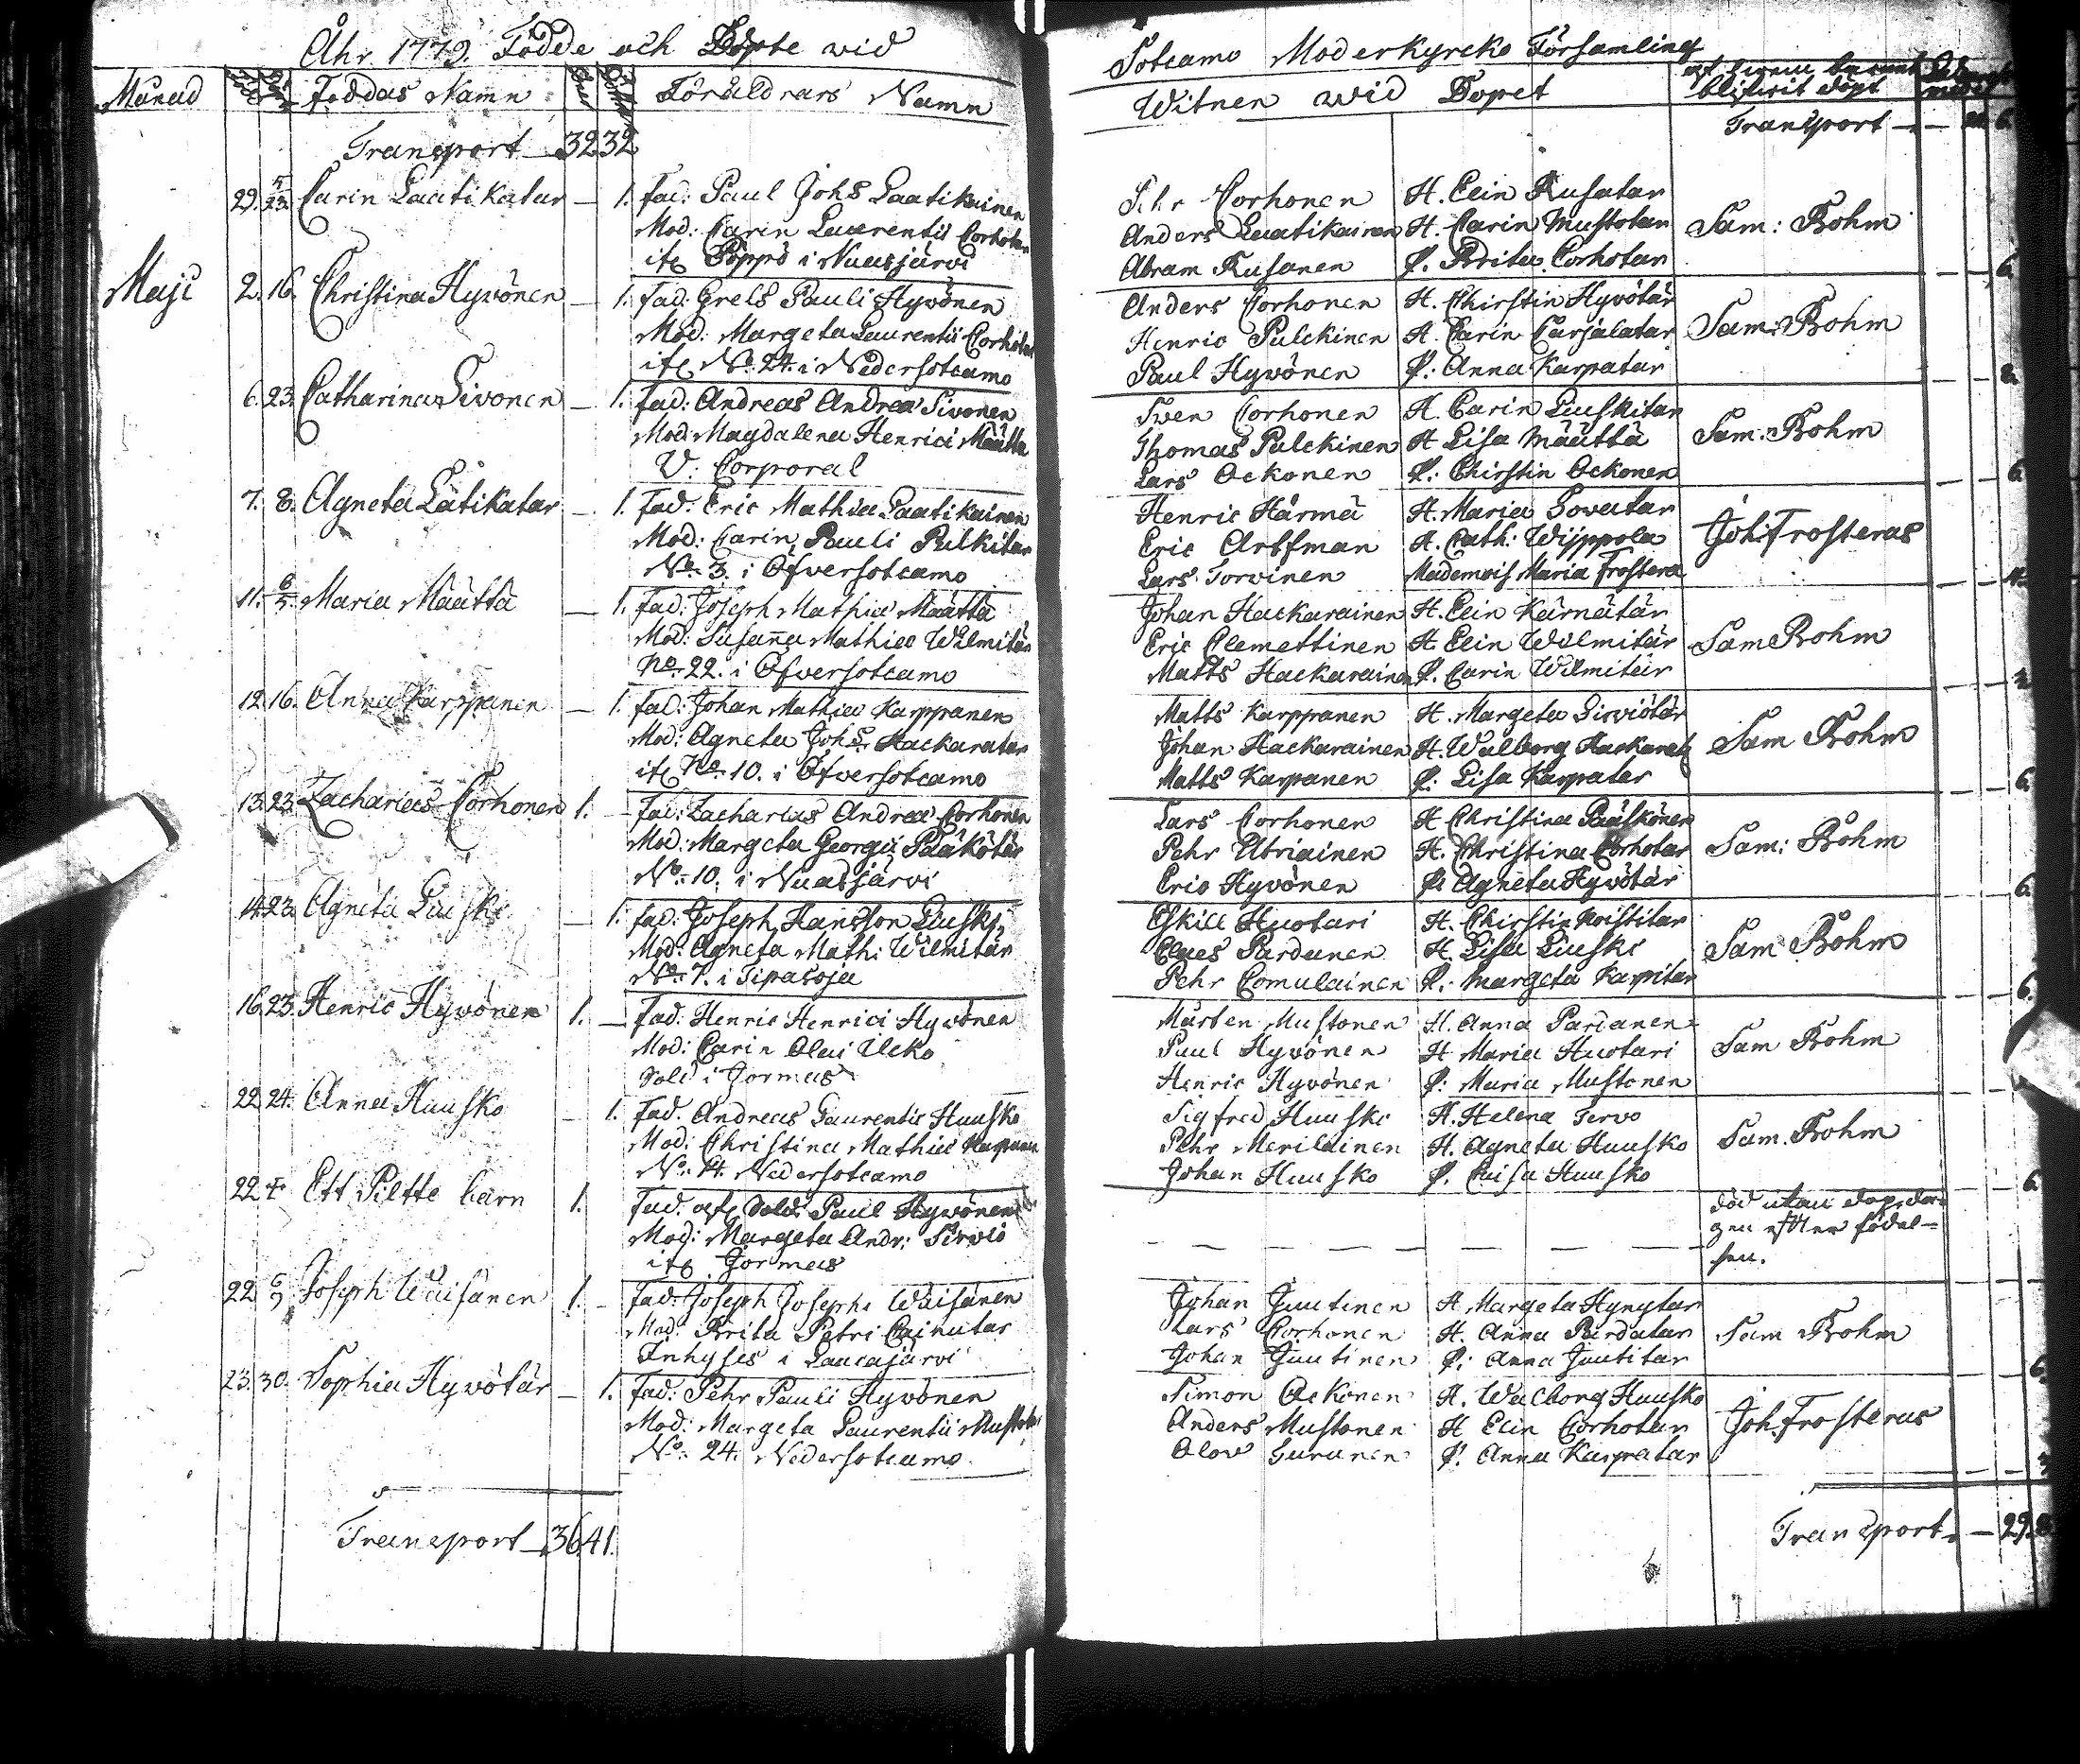 Åhr 1779. Födde och Döpte wid
Månad Föddas Namn Föräldrars Namn
Transport 32 32
29. 5/23. Carin Laatikatar — 1. Fad: Paul Johs Laatikainen
Mod: Carin Laurentii Corhotar
Pöppö i Nuasjärvi
Maji 2. 16. Christina Hyvönen — 1. Fad: Grels Pauli Hyvönen
Mod: Margeta Laurentii Corhotar
No. 24. i Nedersotcamo
6. 23. Catharina Sivonen — 1. Fad: Andreas Andreæ Sivonen
Mod: Magdalena Henrici Määttä
V: Corporal
7. 8. Agneta Lätikatar — 1. Fad: Eric Mathiæ Laatikainen
Mod: Carin Pauli Pulkitar
No. 3. i Öfversotcamo
11. Maria Määttä — 1. Fad: Joseph Mathiæ Määttä
Mod: Susanna Mathiæ Wilmitär
No. 22. i Öfversotcamo
12. 16. Anna Karppanen — 1. Fad: Johan Mathiæ Karppanen
Mod: Agneta Johs Hackaratar
No. 10. i Öfversotcamo
13. 23. Zacharias Corhonen 1. — Fad: Zacharias Andreæ Corhonen
Mod: Margeta Georgii Pääkötär
No. 10. i Nuasjärvi
14. 23. Agneta Liuski — 1. Fad: Joseph Hansson Liuski,
Mod: Agneta Mathi: Wilmitär
No. 7. i Tipasoja
16. 23. Henric Hyvönen 1. — Fad: Henric Henrici Hyvönen
Mod: Carin Olai Ucko
Sold i Jormas
22. 24. Anna Huusko — 1. Fad. Andreas Laurentii Huusko
Mod: Christina Mathiæ Karpanen
No. 14. Nedersotcamo
22. Ett Piltte barn 1. Fad. Sold: Paul Hyvönen
Mod: Margeta Andr: Sirviö
Jormas
22. Joseph Wäisänen 1. — Fad: Joseph Josephi Wäisänen
Mod: Brita Petri Cainutar
Inhyses i Laacajärvi
23. 30. Sophia Hyvötär — 1. Fad: Pehr Pauli Hyvönen
Mod: Margeta Laurentii Mustotar
No. 24. Nedersotcamo
Transport — 36 41.
Sotcamo Moderkyrcko Församling
Witnen wid Dopet
blifwit döpt
Transport — 6.
Pehr Corhonen H. Elin Kusatar
Anders Laatikainen H. Carin Mustotar Sam: Bohm
Abram Kusanen P. Brita Corhotar 6.
Anders Corhonen H. Chirstin Hyvötär
Henric Pulckinen H. Carin Carjalatar Sam: Bohm
Paul Hyvönen P: Anna Karpatar 8.
Swen Corhonen H. Carin Liuskitar
Thomas Pulckinen H. Lisa Määttä Sam: Bohm
Lars Ockonen P: Chirstin Ockonen 6.
Henric Härmä H. Maria Sovatar
Eric Artfman H. Cath: Wijppola Joh: Frosterus
Lars Torvinen Mademois Maria Frostera
Johan Hackarainen H. Elin Kärnätär
Eric Clemettinen H. Elin Wilmitär Sam Bohm
Matts Hackarainen P. Carin Wilmitär
Matts Karppanen H. Margeta Sirviötär
Johan Hackarainen H. Walborg Hackarat Sam Bohm
Matts Karpanen P: Lisa Karpatar 6.
Lars Corhonen H. Christina Pääskönen
Pehr Utriainen H. Christina Corhotar Sam: Bohm
Eric Hyvönen P: Agneta Hyvötär 6.
Eskill Huotari H. Chirstin Koistitar
Claes Pardanen H. Lisa Liuski Sam Bohm
Pehr Comulainen P: Margeta Karpitar 6.
Mårten Mustonen H. Anna Pardanen
Paul Hyvönen H. Maria Huotari Sam Bohm
Henric Hyvönen P: Maria Mustonen
Sigfred Huusko H. Helena Tervo
Pehr Meriläinen H. Agneta Huusko Sam. Bohm
Johan Huusko P. Caisa Huusko 6.
död utan dop, da-
gen efter födel-
sen.
Johan Juutinen H. Margeta Hynytar
Lars Corhonen H. Anna Pardatar Sam Bohm
Johan Juutinen P: Anna Juutitar 6.
Simon Ockonen H. Walborg Huusko
Anders Mustonen H. Elin Corhotar Joh. Frosterus
Olov Gurunen P: Anna Karpatar
Transport — 29. 8